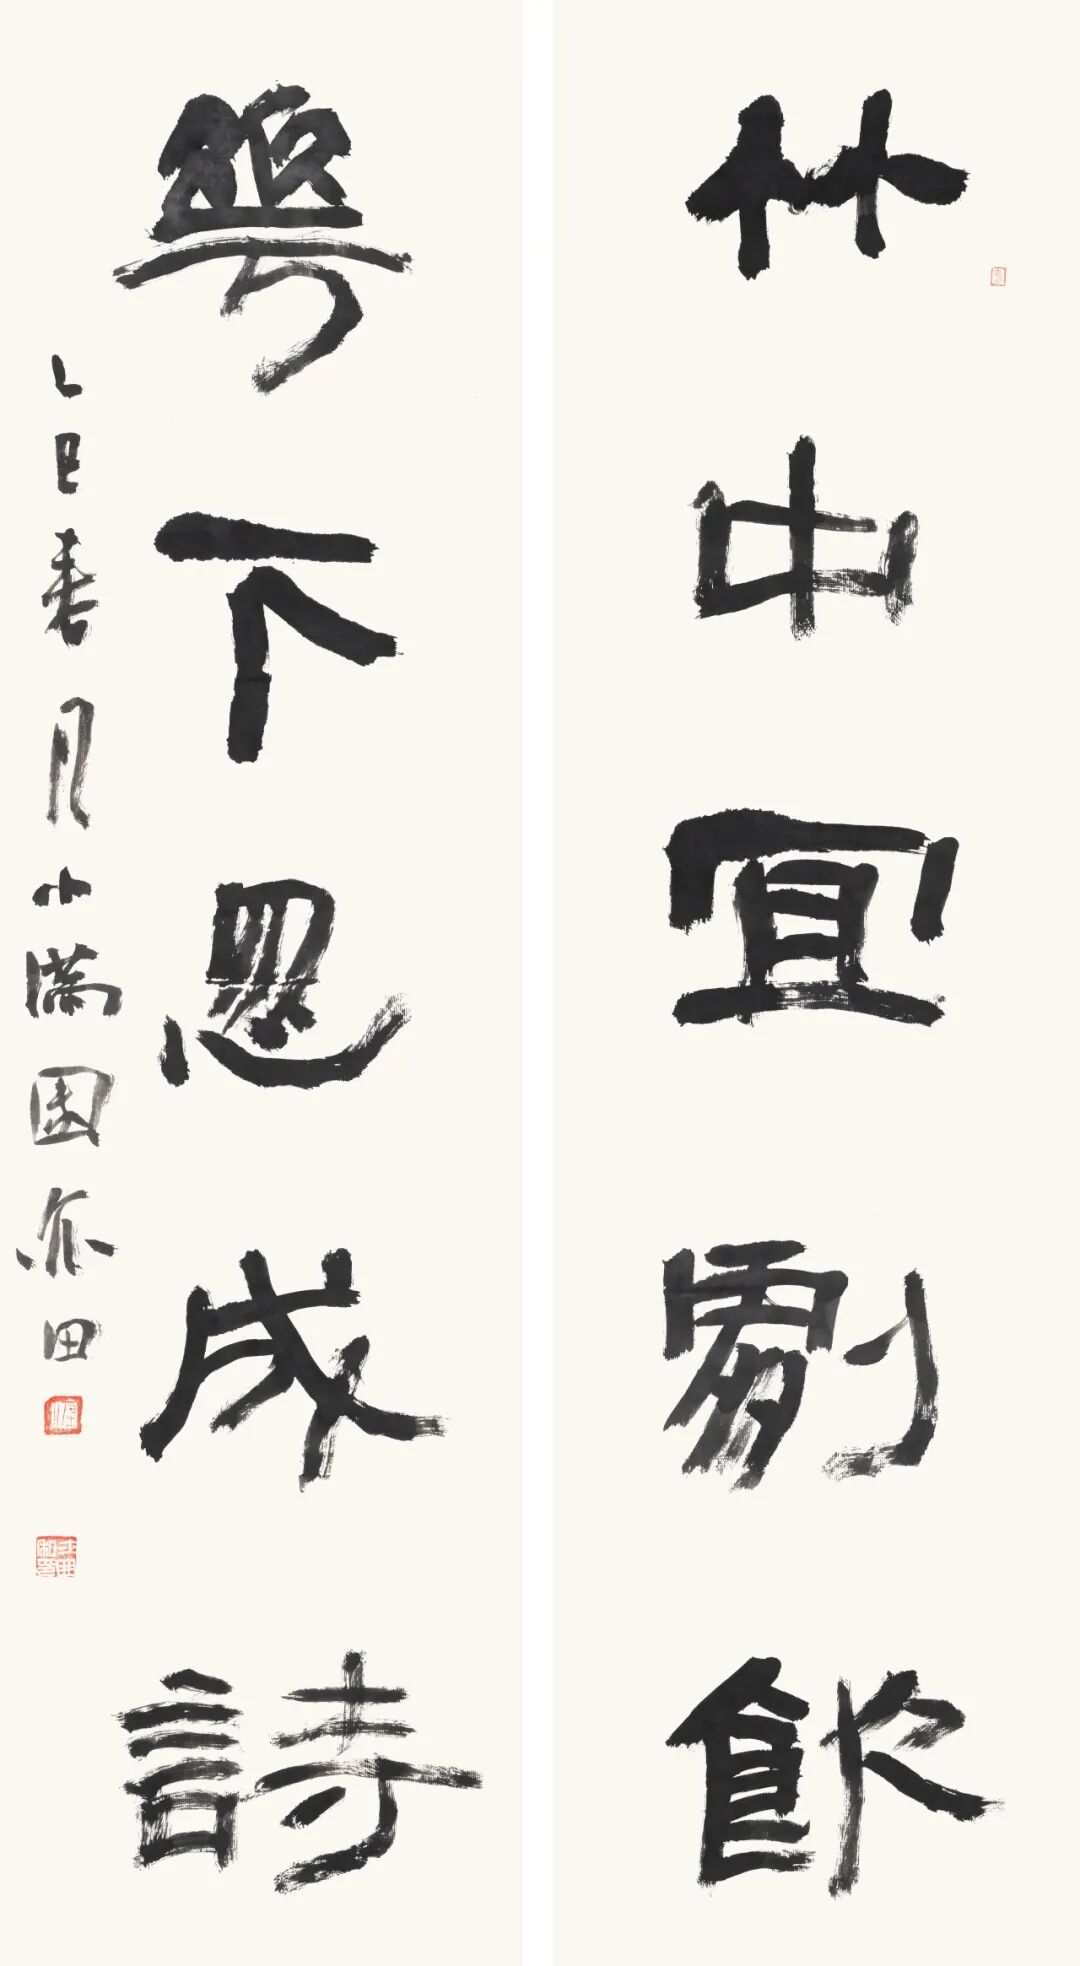 竹中宜劇飲
華下忽成詩
乙巳春月小滿園亦田